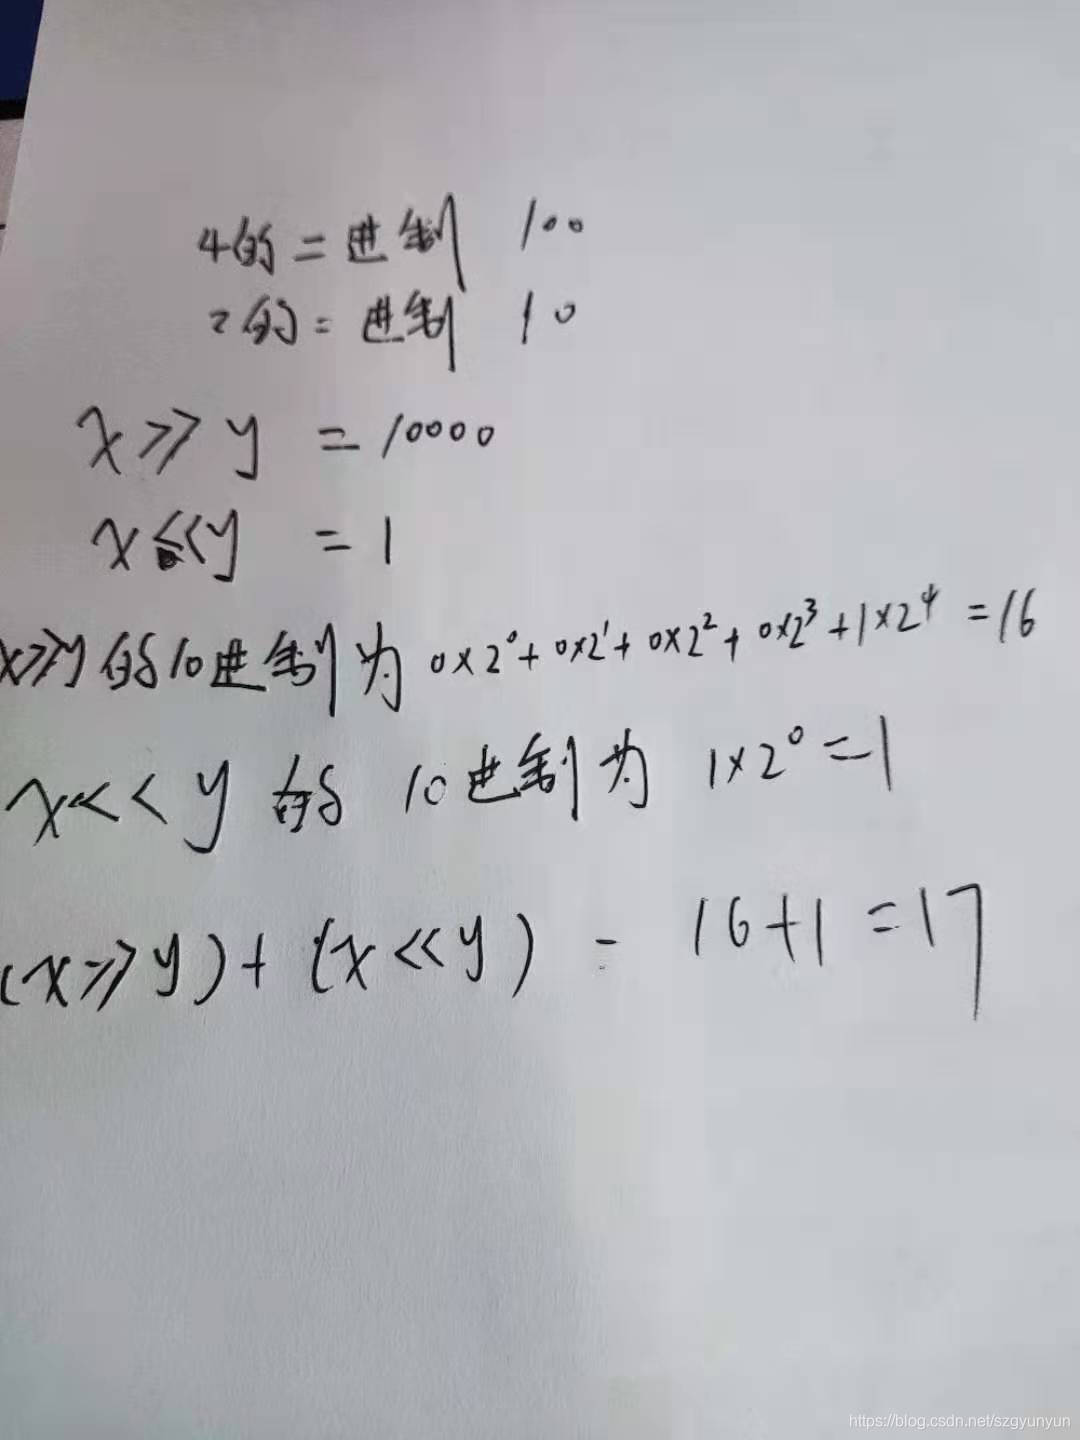 4的二进制 100
2的二进制 10
x>>y =10000
x<<y =1
x>>y的10进制为 0×2⁰+0×2¹+0×2²+0×2³+1×2⁴=16
x<<y的10进制为 1×2⁰=1
(x>>y)+(x<<y) = 16+1=17
https://blog.csdn.net/szgyunyun